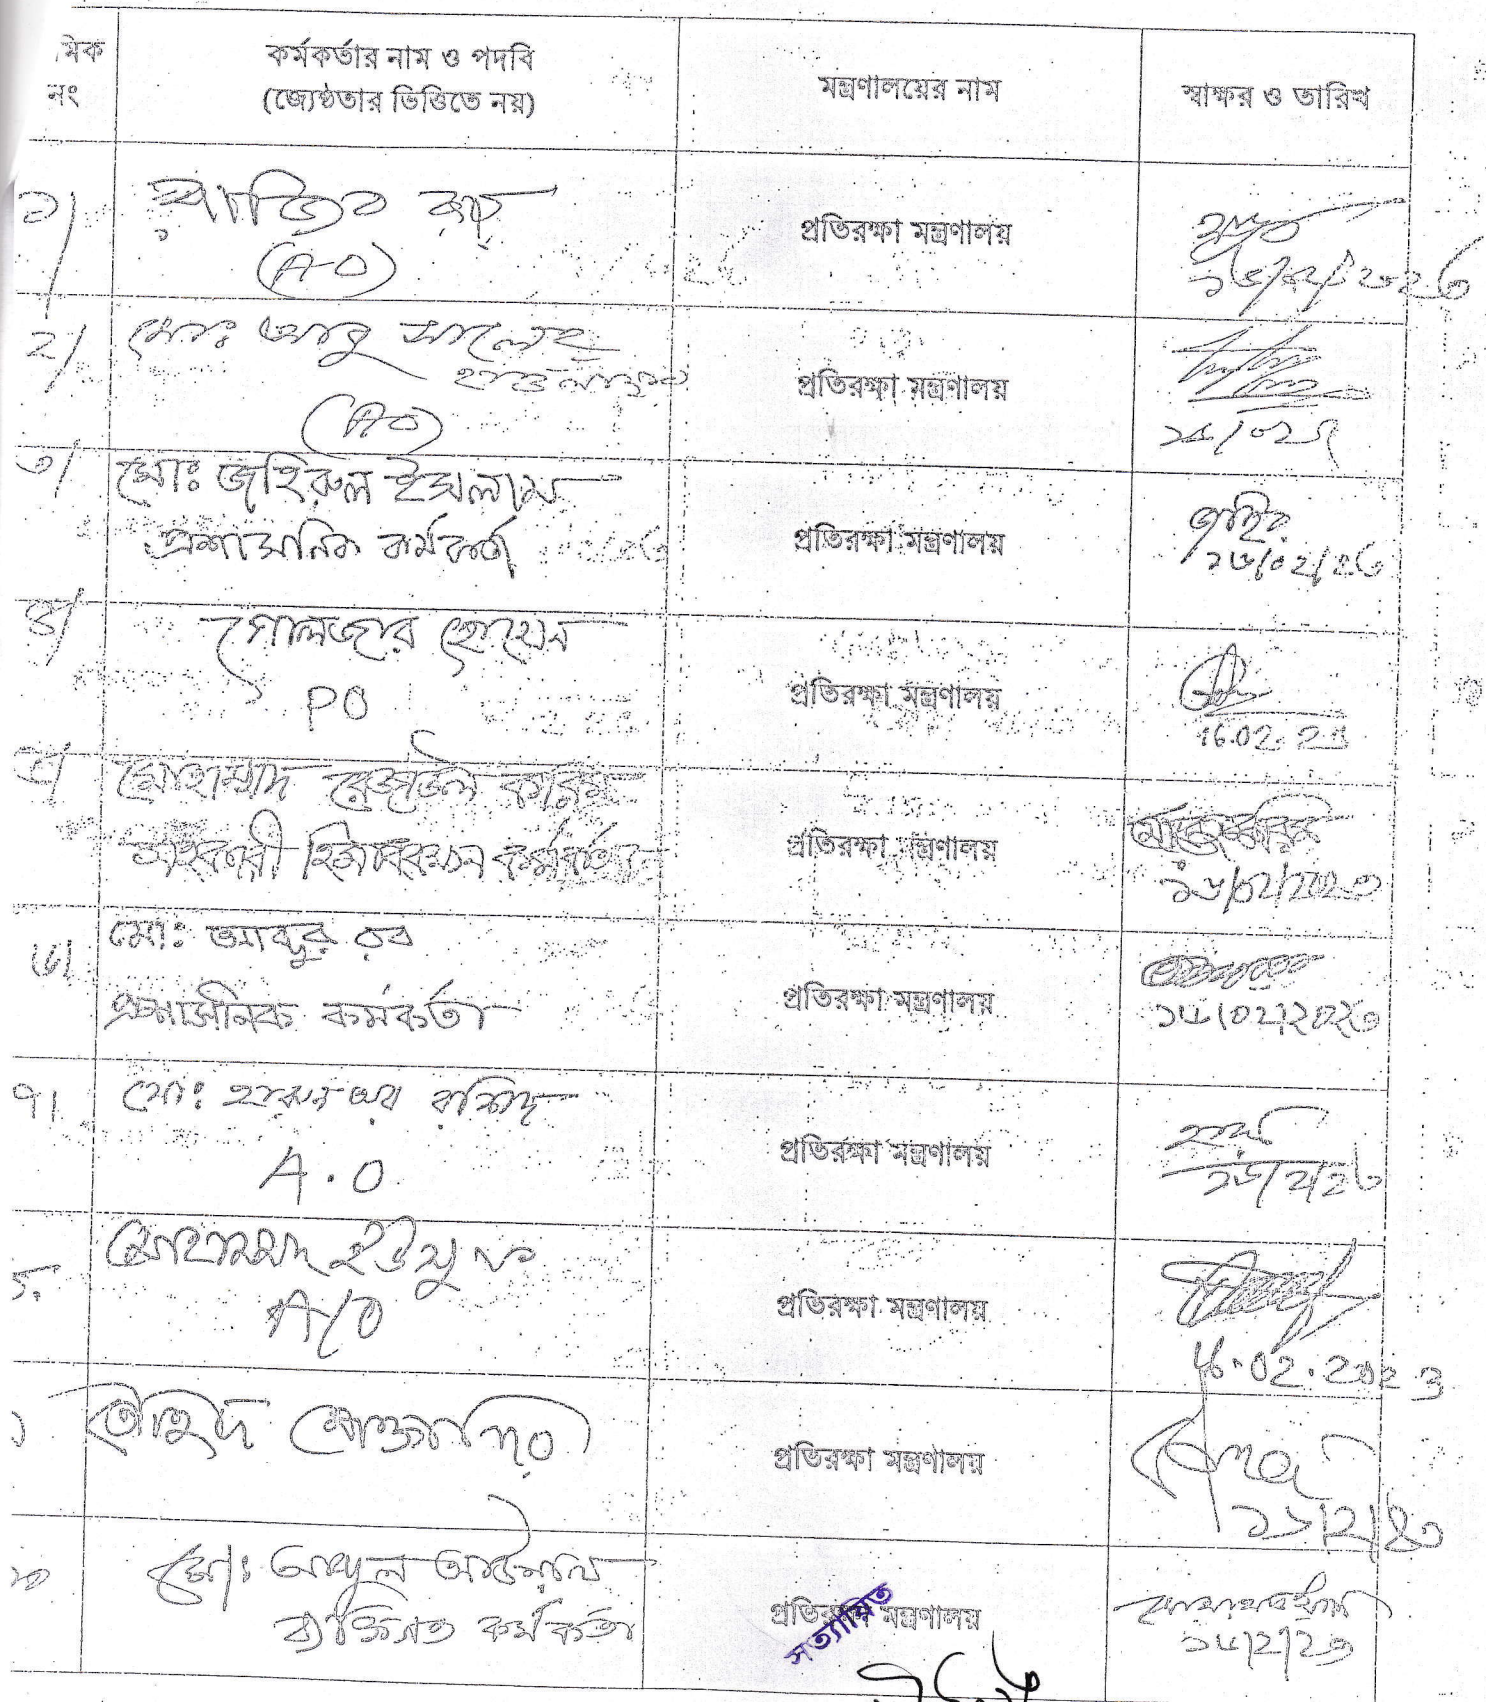 মিক নং
কর্মকর্তার নাম ও পদবি
(জ্যেষ্ঠতার ভিত্তিতে নয়)
মন্ত্রণালয়ের নাম
স্বাক্ষর ও তারিখ
১/
(AO)
প্রতিরক্ষা মন্ত্রণালয়
১৬/০২/২০২৩
২/
মোঃ আবু সালেহ
(AO)
প্রতিরক্ষা মন্ত্রণালয়
৩/
মোঃ জহিরুল ইসলাম
প্রশাসনিক কর্মকর্তা
প্রতিরক্ষা মন্ত্রণালয়
জহির
১৬/০২/২৩
৪/
গোলজার হোসেন
PO
প্রতিরক্ষা মন্ত্রণালয়
16.02.23
৫/
মোহাম্মাদ রেজাউল করিম
সহকারী হিসাবরক্ষণ কর্মকর্তা
প্রতিরক্ষা মন্ত্রণালয়
১৬/০২/২০২৩
৬/
মোঃ আব্দুর রব
প্রশাসনিক কর্মকর্তা
প্রতিরক্ষা মন্ত্রণালয়
১৬/০২/২০২৩
৭/
মোঃ হারুন অর রশিদ
A.O
প্রতিরক্ষা মন্ত্রণালয়
১৬/২/২৩
মোহাম্মদ ইউসুফ
A/O
প্রতিরক্ষা মন্ত্রণালয়
16.02.2023
তৌহিদ
প্রতিরক্ষা মন্ত্রণালয়
১৬/২/২৩
১০
মোঃ আব্দুল আউয়াল
ব্যক্তিগত কর্মকর্তা
প্রতিরক্ষা মন্ত্রণালয়
১৬/২/২৩
সত্যায়িত